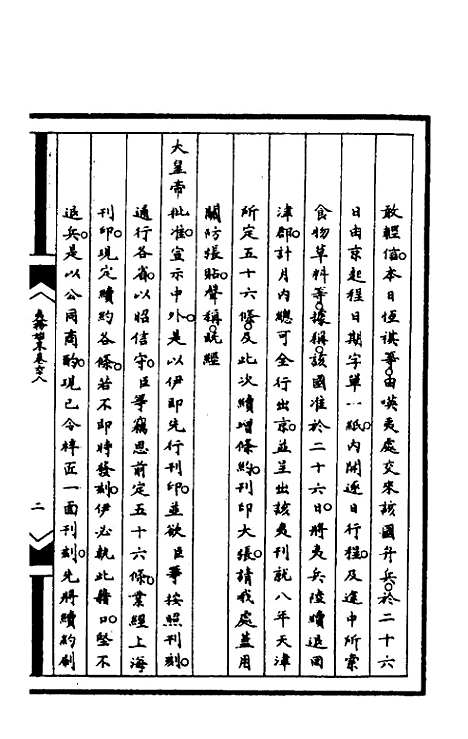 敢輕信。本日恆祺等。由𠸄夷處交來該國升兵。於二十六
日由京起程日期字單一紙。內開逐日行程。及途中所需
食物草料等。據稱。該國准於二十六日。將夷兵陸續退回
津郡。計月內總可全行出京。並呈出該夷刊就八年天津
所定五十六條。及此次續增條約。刊印大張。請我處蓋用
關防張貼。聲稱。既經
大皇帝批准。宣示中外。是以伊即先行刊印。並欲臣等按照刊刻。
通行各省。以昭信守。臣等竊思前定五十六條。業經上海
刊印。現定續約各條。若不即時發刻。伊必執此藉口。堅不
退兵。是以公同商酌。現已令梓匠一面刊刻。先將續約刷
夷務始末卷六八
二